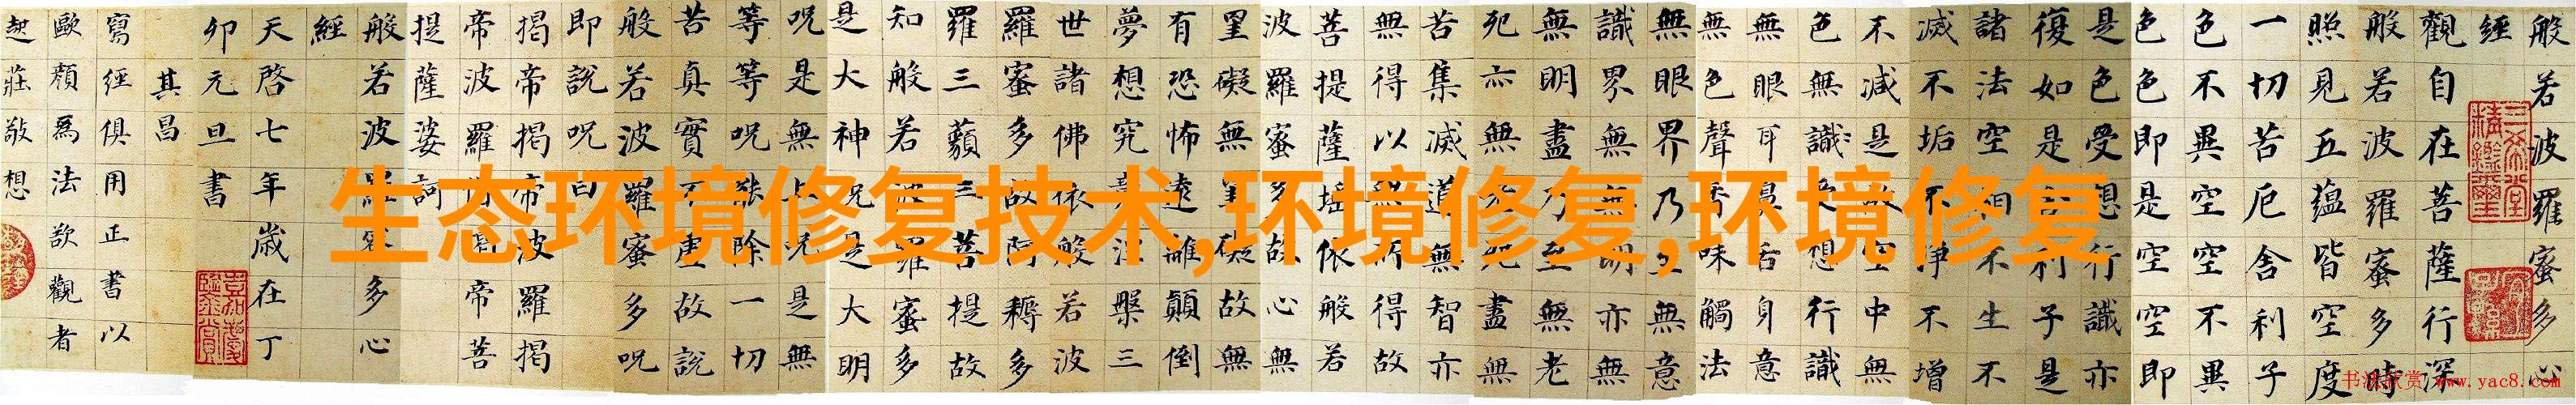 般若波羅蜜多心
經
觀自在菩薩行深
般若波羅蜜多時
照見五蘊皆空度
一切苦厄舍利子
色不異空空不異
色色即是空空即
是色受想行識亦
復如是舍利子是
諸法空相不生不
滅不垢不淨不增
不減是故空中無
色無識受想行識
無眼耳鼻舌身意
無色聲香味觸法
無眼界乃至無意
識界無無明亦無
無明盡乃至無老
死亦無老死盡無
苦集滅道無智亦
無得以無所得故
菩提薩埵依般若
波羅蜜多故心無
罣礙無罣礙故無
有恐怖遠離顛倒
夢想究竟涅槃三
世諸佛依般若波
羅蜜多故阿耨多
羅三藐三菩提故
知般若波羅蜜多
是大神呪是大明
呪是無上呪是無
等等呪能除一切
苦真實不虛故說
般若波羅蜜多呪
即說呪曰
揭帝揭帝波羅揭
帝波羅僧揭帝菩
提薩婆訶
般若波羅蜜多心
經
天啓七年歲在丁
卯元旦書
其昌
寫經俱用正書以
歐顏爲法欲觀者
起莊敬想
生态环境修复技术,环境修复,环境修复
书法欣赏 www.yac8.com